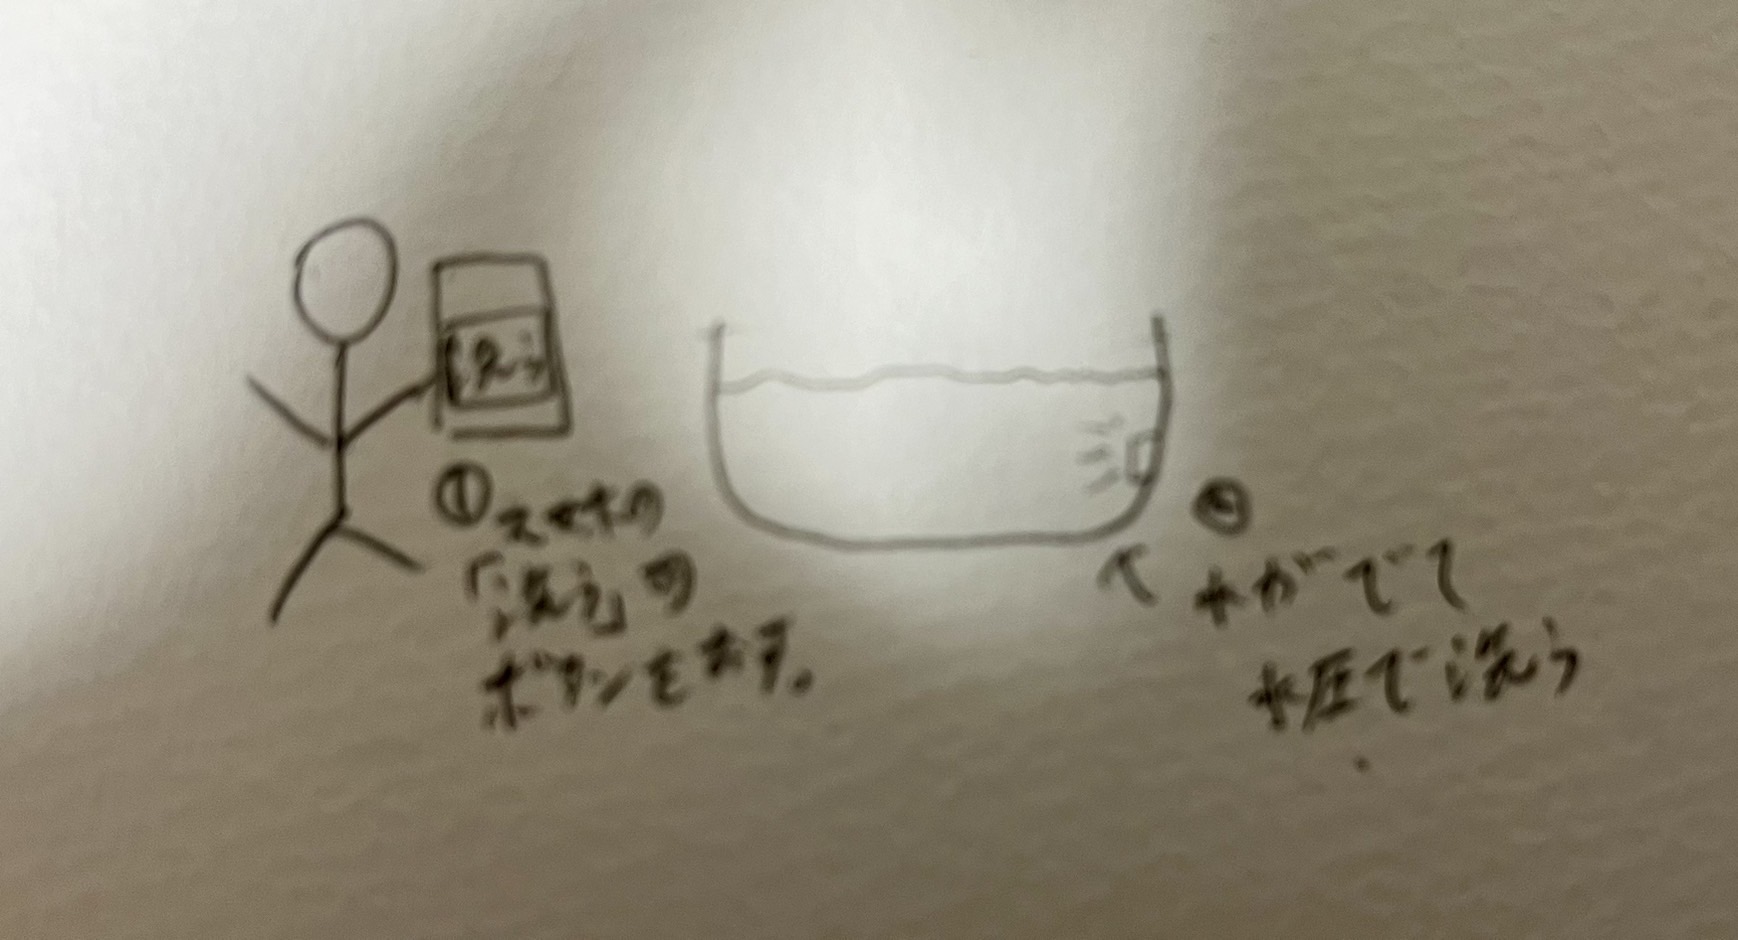 洗う
①スマホの
「洗う」の
ボタンをおす。
②
水がでて
水圧で洗う